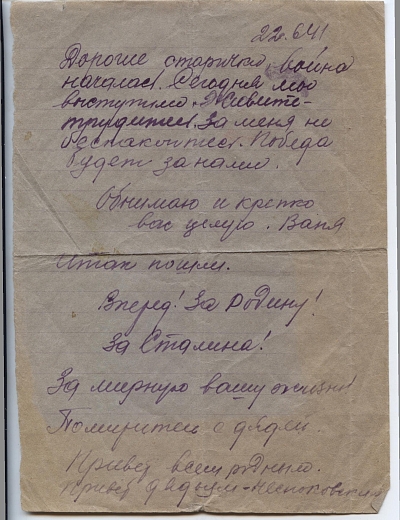 22.6.41
Дорогие старички, война
началась. Сегодня мы
выступили. Живите-
трудитесь. За меня не
беспокойтесь. Победа
будет за нами.
Обнимаю и крепко
вас целую. Ваня
Итак пошли.
Вперед! За Родину!
За Сталина!
За мирную вашу жизнь!
Помиритесь с дядей.
Привет всем родным.
Привет дядьям